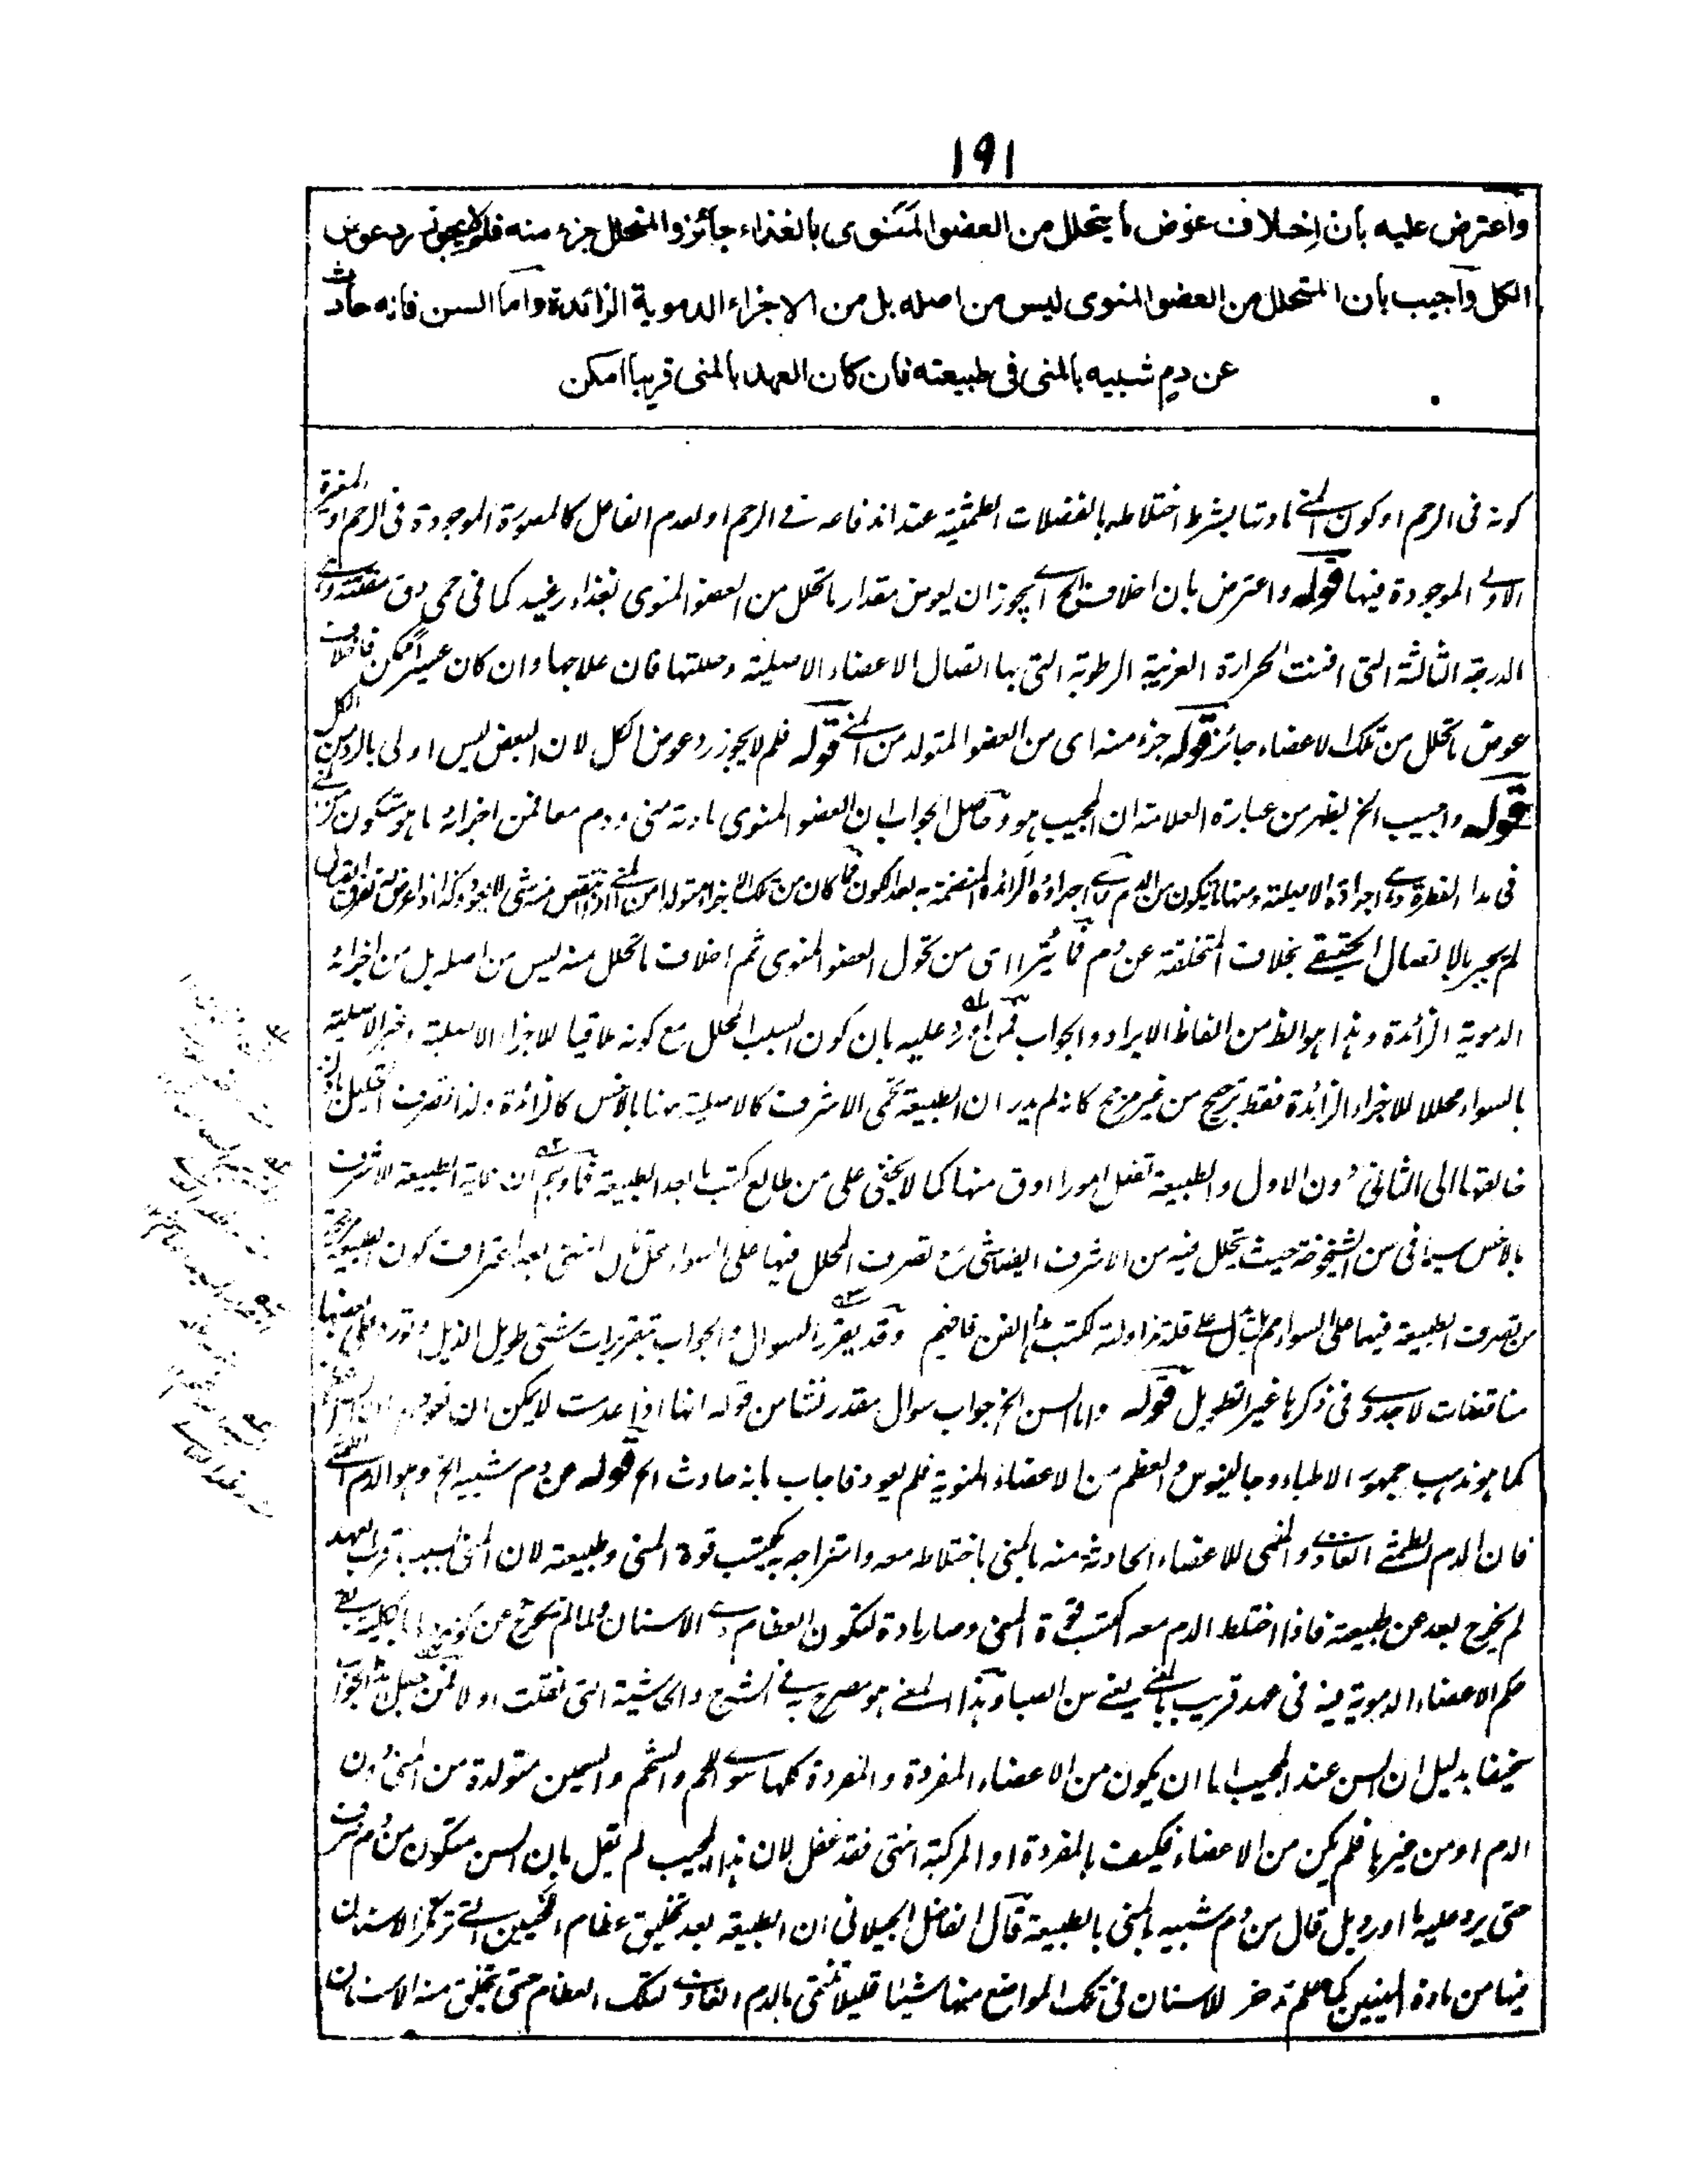 ۱۹۱
واعترض عليه بأن اخلاف عوض ما يتحلل من العضو المنوى بالغذاء جائز والمتحلل جزء منه فلم لا يجوز رد عوض
الكل وآجيب بأن المتحلل من العضو المنوى ليس من اصله بل من الاجزاء الدموية الزائدة واما السن فانه حادث
عن دم شبيه بالمنى فى طبيعته فان كان العهد بالمنى قريبا امكن
كونه فى الرحم او كون المنى مادتها بشرط اختلاطه بالفضلات الطمثية عند اندفاعه فى الرحم او لعدم الفاعل كالمصورة الموجودة فى الرحم او المغيرة
الاولى الموجودة فيها قوله واعترض بان اخلاف الخ اى يجوز ان يعوض مقدار ما تحلل من العضو المنوى بغذاء رغيد كما فى حمى دق
الدرجة الثالثة التى افنت الحرارة الغريبة الرطوبة التى بها اتصال الاعضاء الاصلية وصلتها فان علاجها وان كان عسيرا ممكن فاخلاف
عوض ما تحلل من تلك الاعضاء جائز قوله جزء منه اى من العضو المتولد من المنى قوله فلم لا يجوز رد عوض الكل لان البعض ليس اولى بالرد من الكل
قوله واجيب الخ يظهر من عبارة العلامة ان المجيب هو وحاصل الجواب ان العضو المنوى مادته منى ودم معا فمن اجزائه ما هو متكون من المنى
فى بدا الفطرة وهى اجزاؤه الاصلية ومنها ما يكون من الدم وهى اجزاؤه الزائدة المنضمة به بعد الكون فما كان من تلك الاجزاء متولدا من المنى اذا انتقص منه شئ لا يعود وكذا اذا عرض له تفرق اتصال
لم يجبر بالاتصال الحقيقى بخلاف المتخلقة عن دم فما يترااى من تحول العضو المنوى ثم اخلاف ما تحلل منه ليس من اصله بل من اجزائه
الدموية الزائدة وهذا هو الظ من الفاظ الايراد والجواب فمن اورد عليه بان كون السبب المحلل مع كونه ملاقيا للاجزاء الاصلية وغير الاصلية
بالسواء محللا للاجزاء الزائدة فقط ترجيح من غير مرجح كانه لم يدر ان الطبيعة تحمى الاشرف كالاصلية هنا بالاخس كالزائدة ولذا تصرف التحليل باذن
خالقها الى الثانى دون الاول والطبيعة تفعل امورا ادق منها كما لا يخفى على من طالع كتب ما بعد الطبيعة فما وهم ان حماية الطبيعة الاشرف
بالاخس سيما فى سن الشيخوخة حيث يتحلل فيه من الاشرف ايضا شئ مع تصرف المحلل فيها على السواء محل تامل انتهى بعد اعتراف كون الطبيعة
من تصرف الطبيعة فيها على السواء مما يدل على قلة مزاولته لكتب هذا الفن فافهم وقد يقرر السوال والجواب بتقريرات شتى طويل الذيل وتورد على بعضها
مناقضات لا جدوى فى ذكرها غير التطويل قوله واما السن الخ جواب سوال مقدر نشا من قوله انها اذا عدمت لا يمكن ان تعود
كما هو مذهب جمهور الاطباء وجالينوس والعظم من الاعضاء المنوية فلم يعود فاجاب بانه حادث الخ قوله عن دم شبيه الخ وهو الدم الطمثى
فان الدم الطمثى الغاذى والمنمى للاعضاء الحادثة منه بالمنى باختلاطه معه وامتزاجه به يكتسب قوة المنى وطبيعته لان المنى بسبب قرب العهد
لم يخرج بعد عن طبيعته فاذا اختلط الدم معه اكتسب قوة المنى وصار مادة لتكون العظام وهى الاسنان ولما لم يخرج عن كونه دما بالكلية بقى
حكم الاعضاء الدموية فيه فى عهد قريب بالمنى يعنى سن الصبا وهذا المعنى هو مصرح به فى الشرح والحاشية التى نقلت اولا فمن جعل هذا الجواب
سخيفا بدليل ان السن عند المجيب اما ان يكون من الاعضاء المفردة والمفردة كلها سوى اللحم والشحم والسمين متولدة من المنى دون
الدم او من غيرها فلم يكن من الاعضاء فكيف بالمفردة او المركبة انتهى فقد غفل لان هذا المجيب لم يقل بان السن متكون من دم صرف
حتى يرد عليه ما اورد بل قال من دم شبيه بالمنى بالطبيعة قال الفاضل الجيلانى ان الطبيعة بعد تخليق عظام اللحيين التى تركز الاسنان
فيها من مادة المنيين كما علم تدخر للاسنان فى تلك المواضع منها شيئا قليلا تنمى بالدم الغاذى لتلك العظام حتى تخلق منه الاسنان